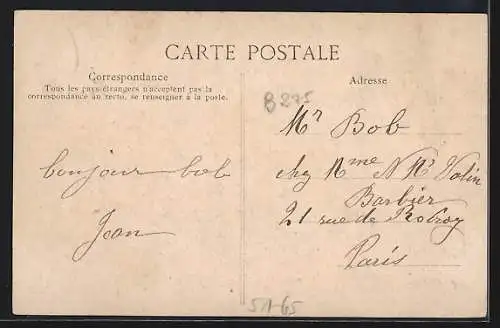 CARTE POSTALE
Correspondance
Tous les pays étrangers n'acceptent pas la
correspondance au recto, se renseigner à la poste.
bonjour bob
Jean
Adresse
B275
Mr Bob
chez Mme
Barbier
21 rue de
Paris
51-65